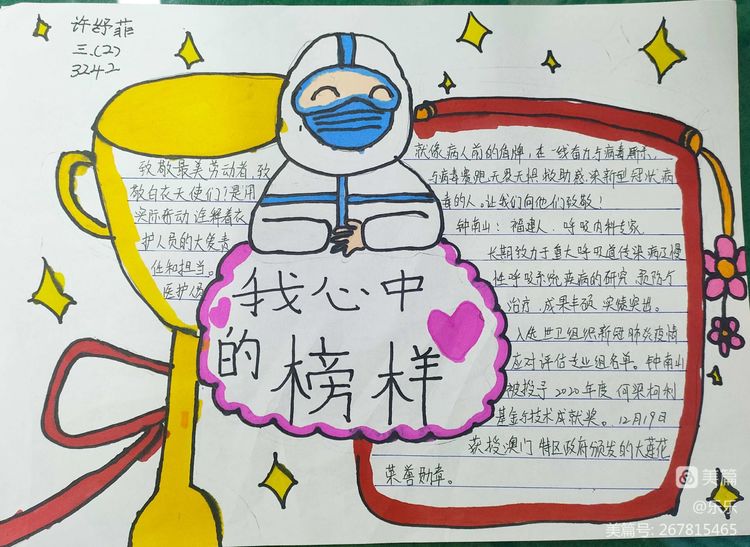 许舒菲
三.(2)
3242
致敬最美劳动者,致
敬白衣天使们!是用
实际行动诠释着衣
护人员的大爱责
任和担当。
医护人员
我心中
的榜样
就像病人前的盾牌,在一线奋力与病毒厮杀,
与病毒赛跑无忌无惧救助感染新型冠状病
毒的人。让我们向他们致敬!
钟南山:福建人、呼吸内科专家
长期致力于重大呼吸道传染病及慢
性呼吸系统疾病的研究、预防个
治疗,成果丰硕,实绩突出。
入选世卫组织新冠肺炎疫情
应对评估专业组名单。钟南山
被授予2020年度何梁何利
基金与技术成就奖。12月19日
获授澳门特区政府颁发的大莲花
荣誉勋章。
美篇
@乐乐
美篇号:267815465